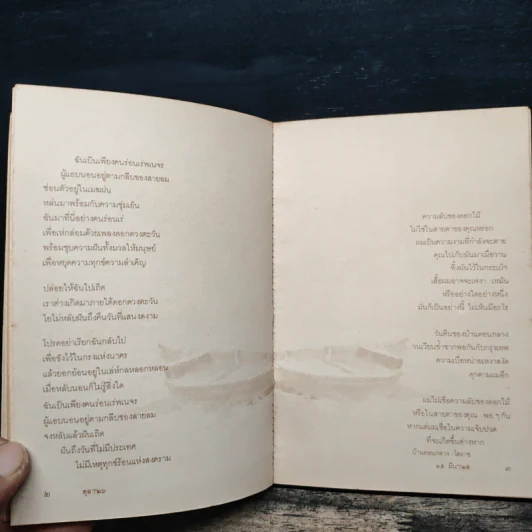 ฉันเป็นเพียงคนร่อนเร่พเนจร
ผู้แอบนอนอยู่ตามกลีบของสายลม
ซ่อนตัวอยู่ในเมฆฝน
หล่นมาพร้อมกับความชุ่มเย็น
ฉันมาที่นี่อย่างคนร่อนเร่
เพื่อเห่กล่อมด้วยเพลงดอกดวงตะวัน
พร้อมชุบความฝันทั้งมวลให้มนุษย์
เพื่อหยุดความทุกข์ความลำเค็ญ
ปล่อยให้ฉันไปเถิด
เราต่างเกิดมาภายใต้ดอกดวงตะวัน
ใยไม่หลับฝันถึงคืนวันที่แสนงดงาม
โปรดอย่าเรียกฉันกลับไป
เพื่อขังไว้ในกรงแห่งนาคร
แล้วยอกย้อนอยู่ในเล่ห์กลหลอกหลอน
เมื่อหลับนอนก็ไม่รู้สิ่งใด
ฉันเป็นเพียงคนร่อนเร่พเนจร
ผู้แอบนอนอยู่ตามกลีบของสายลม
จงหลับแล้วฝันเถิด
ฝันถึงวันที่ไม่มีประเทศ
ไม่มีเหตุทุกข์ร้อนแห่งสงคราม
๒ ตุลา๒๖
ความลับของดอกไม้
ไม่ใช่ในสายตาของคุณหรอก
ผมเป็นความงามที่กำลังจะตาย
คุณไปเก็บมันมาเมื่อวาน
ทิ้งมันไว้ในกระเป๋า
เสื้อผมอาจจะเหงา เหม็น
หรืออย่างใดอย่างหนึ่ง
มันก็เป็นอย่างนี้ ไม่เห็นมีอะไร
วันคืนของบ้านดอนกลาง
วนเวียนซ้ำซากพอกันกับกรุงเทพ
ความเบื่อหน่าย
คุกคาม
ผมไม่เชื่อความลับของดอกไม้
หรือในสายตาของคุณ พอ ๆ กัน
หากแต่ผมเชื่อในความเจ็บปวด
ที่จะเกิดขึ้นต่างหาก
บ้านดอนกลาง โคราช
๒๕ มีนา๒๕
๓